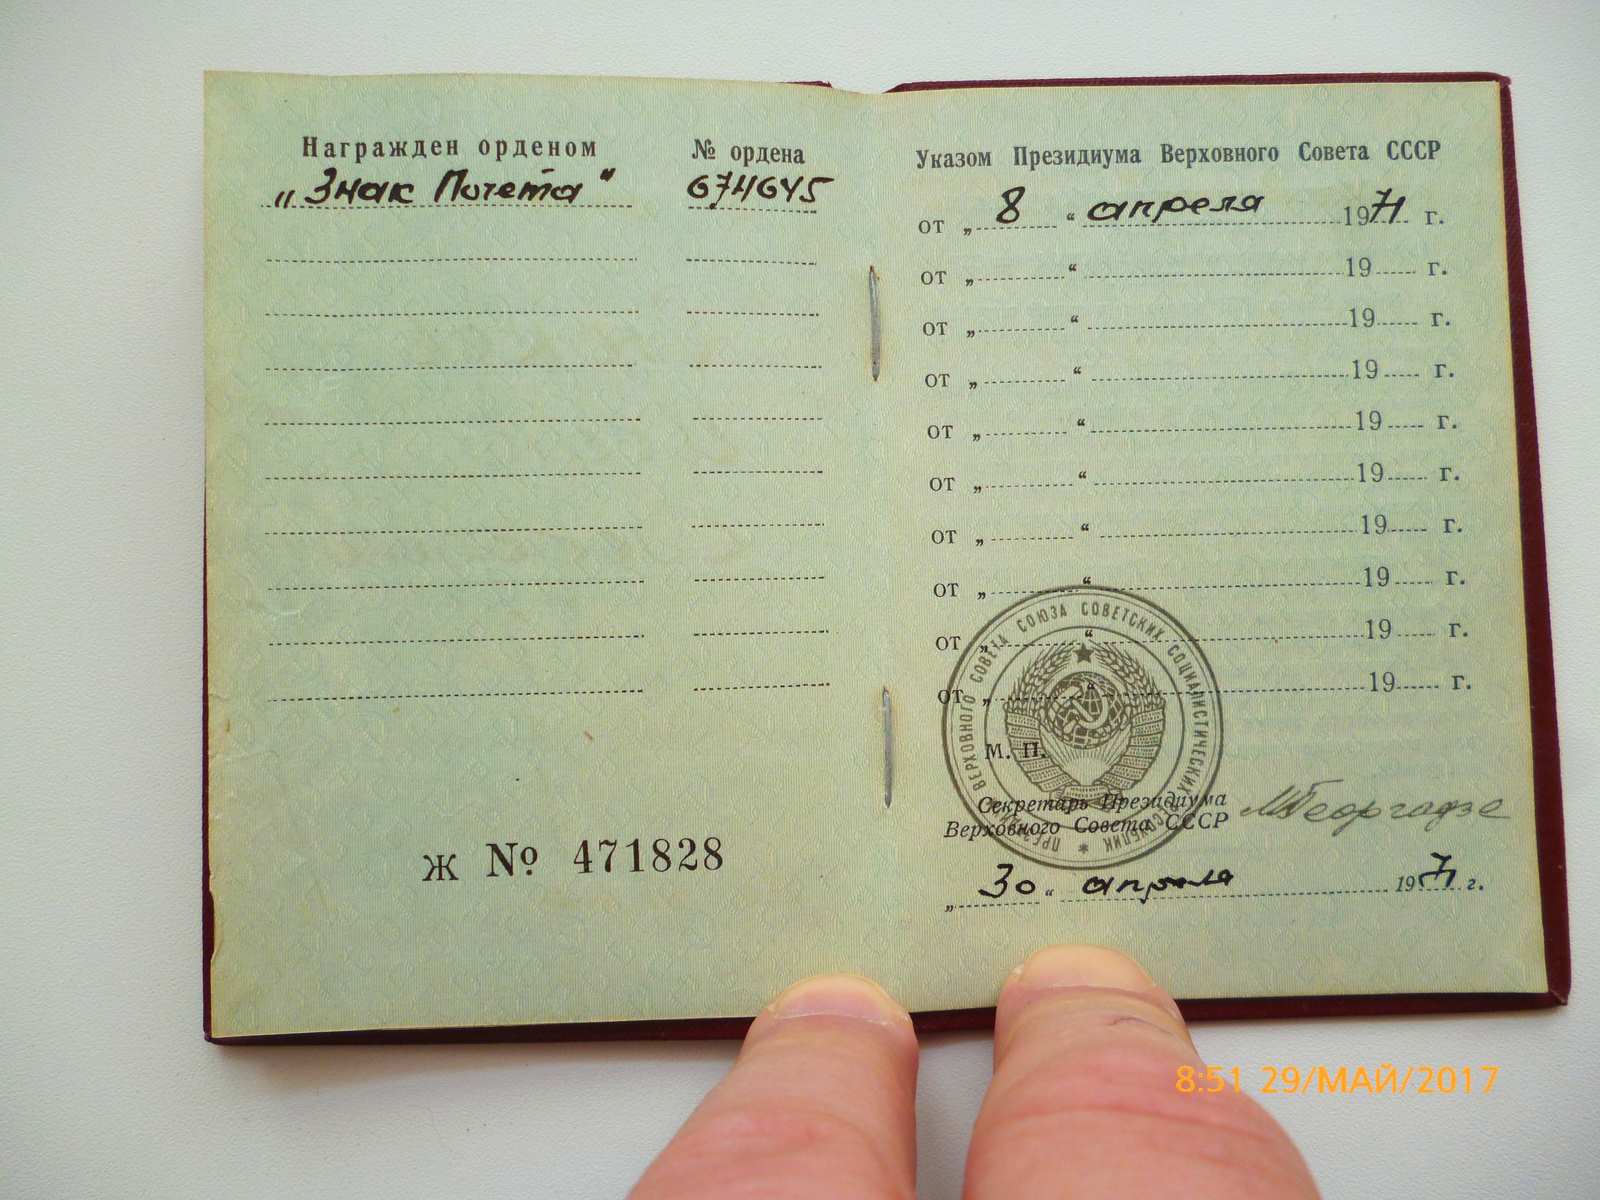 Награжден орденом
„Знак Почета“
№ ордена
674645
Ж № 471828
Указом Президиума Верховного Совета СССР
от „ 8 “ апреля 1971 г.
от „ “ 19 г.
от „ “ 19 г.
от „ “ 19 г.
от „ “ 19 г.
от „ “ 19 г.
от „ “ 19 г.
от „ “ 19 г.
от „ “ 19 г.
от „ “ 19 г.
ПРЕЗИДИУМ ВЕРХОВНОГО СОВЕТА СОЮЗА СОВЕТСКИХ СОЦИАЛИСТИЧЕСКИХ РЕСПУБЛИК *
М. П.
Секретарь Президиума
Верховного Совета СССР
МГеоргадзе
„ 30 “ апреля 1971 г.
8:51 29/МАЙ/2017